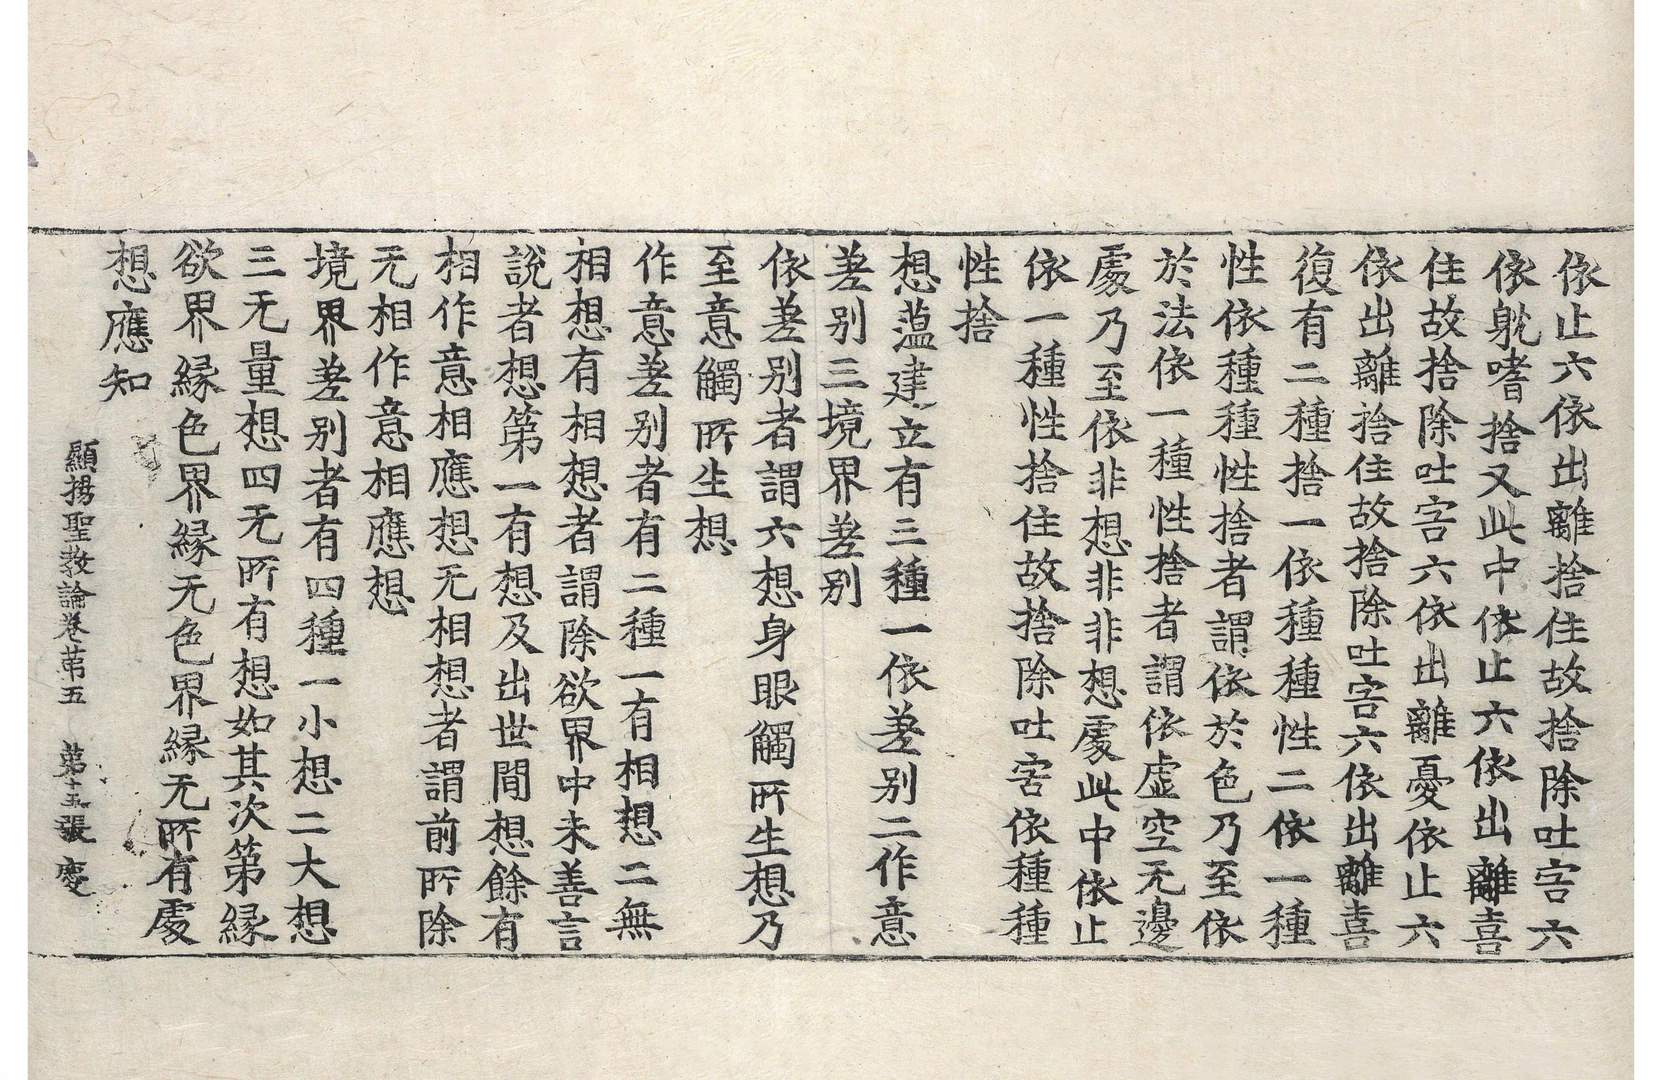 依止六依出離捨住故捨除吐害六
依躭嗜捨又此中依止六依出離喜
住故捨除吐害六依出離憂依止六
依出離捨住故捨除吐害六依出離喜
復有二種捨一依種種性二依一種
性依種種性捨者謂依於色乃至依
於法依一種性捨者謂依虛空无邊
處乃至依非想非非想處此中依止
依一種性捨住故捨除吐害依種種
性捨
想蕰建立有三種一依差別二作意
差別三境界差別
依差別者謂六想身眼觸所生想乃
至意觸所生想
作意差別者有二種一有相想二無
相想有相想者謂除欲界中未善言
說者想第一有想及出世間想餘有
相作意相應想无相想者謂前所除
无相作意相應想
境界差別者有四種一小想二大想
三无量想四无所有想如其次第緣
欲界緣色界緣无色界緣无所有處
想應知
顯揚聖教論卷第五 第十五張 慶